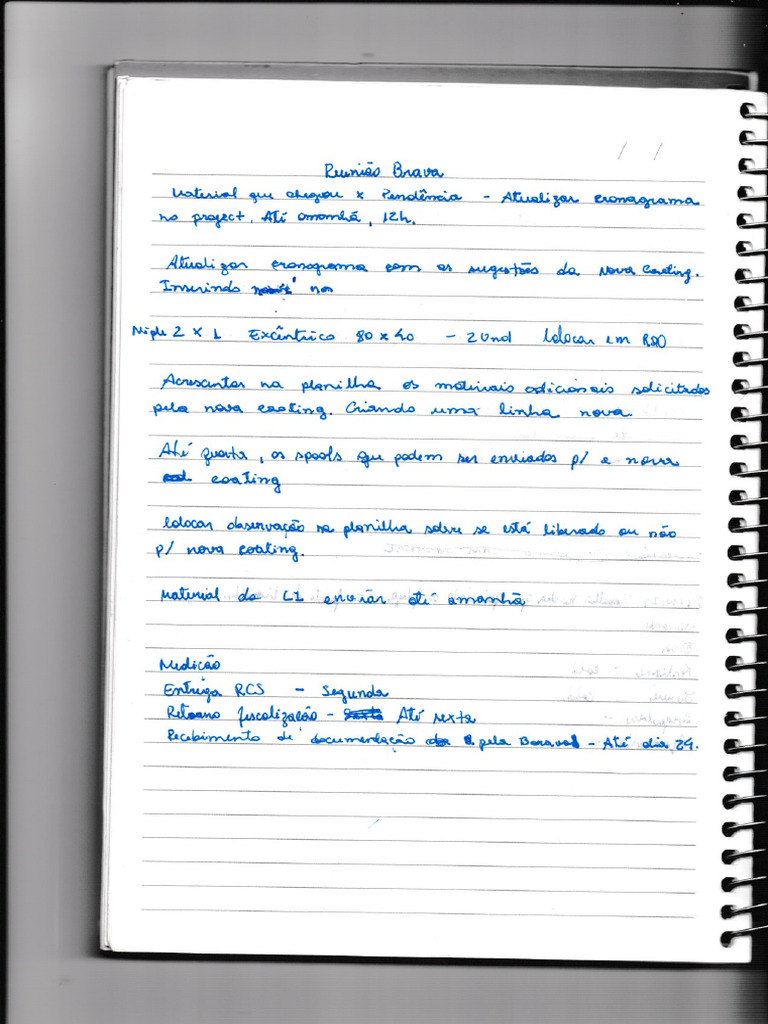 / /
Reunião Brava
Material que chegou x Pendência - Atualizar cronograma
no project. Até amanhã, 12h.
Atualizar cronograma com as sugestões da Nova Coating.
Inserindo nas
Niple 2 x 1 Excêntrico 80 x 40 - 2 Und Colocar em RDO
Acrescentar na planilha os materiais adicionais solicitados
pela nova coating. Criando uma linha nova.
Até quarta, os spools que podem ser enviados p/ a nova
coating
Colocar observação na planilha sobre se está liberado ou não
p/ nova coating.
Material da L1 enviar até amanhã
Medição
Entrega RCS - Segunda
Retorno fiscalização - Até sexta
Recebimento de documentação pela - Até dia 24.